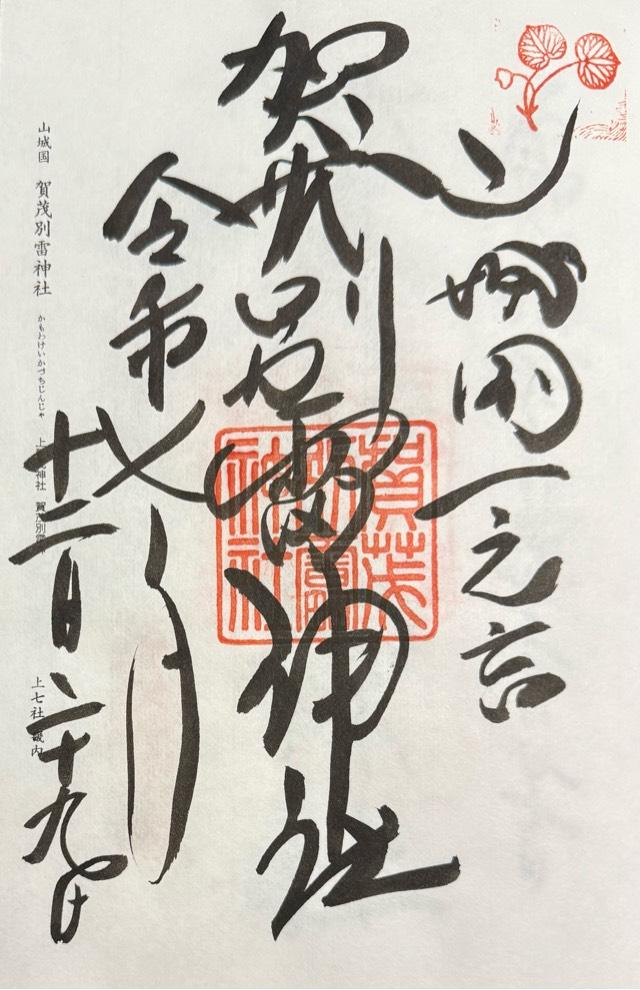 山城國一之宮
賀茂別雷神社
令和七年
十二月二十九日
賀茂別雷神社
山城国 賀茂別雷神社 かもわけいかづちじんじゃ 神社 賀茂別雷 上七社 畿内